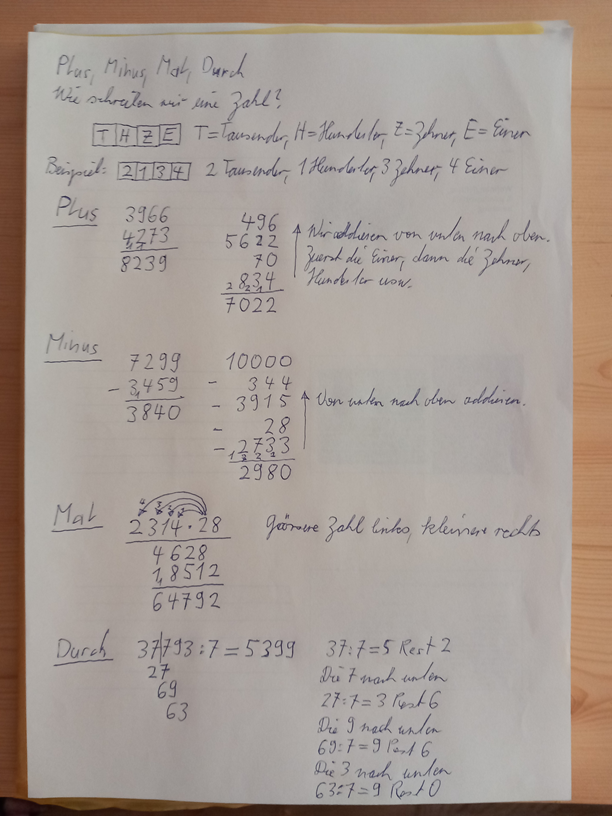 Plus, Minus, Mal, Durch
Wie schreiben wir eine Zahl?
T H Z E T = Tausender, H = Hunderter, Z = Zehner, E = Einer
Beispiel: 2 1 3 4 2 Tausender, 1 Hunderter, 3 Zehner, 4 Einer
Plus
3966
4273
1 1
8239
496
5622
70
834
2 2 1
7022
Wir addieren von unten nach oben.
Zuerst die Einer, dann die Zehner,
Hunderter usw.
Minus
7299
- 3459
1
3840
10000
- 344
- 3915
- 28
- 2733
1 3 2 2
2980
Von unten nach oben addieren.
Mal
2314 · 28
4628
18512
1
64792
Grössere Zahl links, kleinere rechts
Durch
37793 : 7 = 5399
27
69
63
37 : 7 = 5 Rest 2
Die 7 nach unten
27 : 7 = 3 Rest 6
Die 9 nach unten
69 : 7 = 9 Rest 6
Die 3 nach unten
63 : 7 = 9 Rest 0